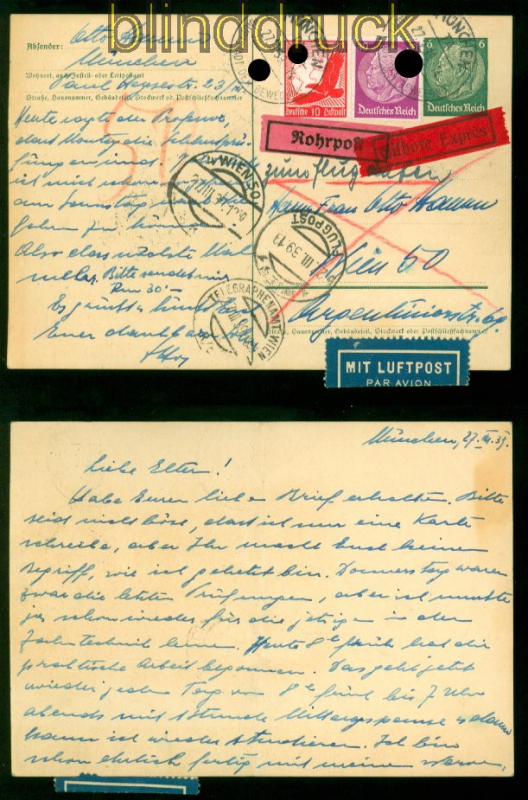 blinddruck
Absender:
Otto
München
Wohnort, auch Zustell- oder Leitpostamt
Paul Heysestr. 23/
Straße, Hausnummer, Gebäudeteil, Stockwerk od. Postschließfachnummer
MÜNCHEN
MÜNCHEN
DEUTSCHE 10 Luftpost
Deutsches Reich
6 6
Deutsches Reich
Rohrpost
Exprès
Heute sagte der Professor
dass Montag die
WIEN 50
FLUGPOST
III. 39
TELEGRAPHENAMT WIEN
zum Flughafen
Frau Otto
Wien 50
Argentinierstr. 69
Straße, Hausnummer, Gebäudeteil, Stockwerk oder Postschließfachnummer
ich nicht schon
am Samstag
fahren zu können
Also das nächste Mal
mehr. Bitte sendet mir
Rm 30.-
Es grüsst u. küsst Euch
Euer dankbarer Sohn
Otto
MIT LUFTPOST
PAR AVION
München, 27. III. 39.
Liebe Eltern!
Habe Euren lieben Brief erhalten. Bitte
seid nicht böse, dass ich nur eine Karte
schreibe, aber Ihr macht Euch keinen
Begriff, wie ich gehetzt bin. Donnerstag waren
zwar die letzten Prüfungen, aber ich musste
ja schon wieder für die jetzigen in der
Zahntechnik lernen. Heute 8h früh hat die
praktische Arbeit begonnen. Das geht jetzt
wieder jeden Tag von 8h früh bis 7 Uhr
abends mit 1 Stunde Mittagspause u. dann
kann ich wieder studieren. Ich bin
schon ehrlich fertig mit meinen Nerven,